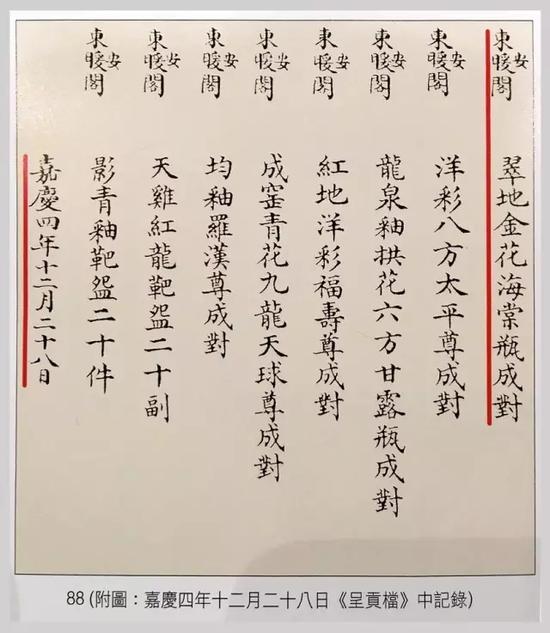 安東暖閣 翠地金花海棠瓶成對
安東暖閣 洋彩八方太平尊成對
安東暖閣 龍泉釉拱花六方甘露瓶成對
安東暖閣 紅地洋彩福壽尊成對
安東暖閣 成窰青花九龍天球尊成對
安東暖閣 均釉羅漢尊成對
安東暖閣 天雞紅龍靶盌二十副
安東暖閣 影青釉靶盌二十件
嘉慶四年十二月二十八日
88 (附圖：嘉慶四年十二月二十八日《呈貢檔》中記錄)